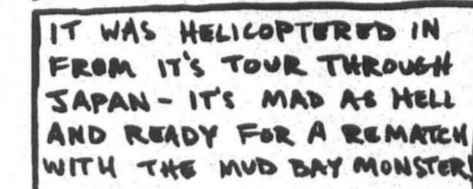 IT WAS HELICOPTERED IN
FROM IT'S TOUR THROUGH
JAPAN - IT'S MAD AS HELL
AND READY FOR A REMATCH
WITH THE MUD BAY MONSTER